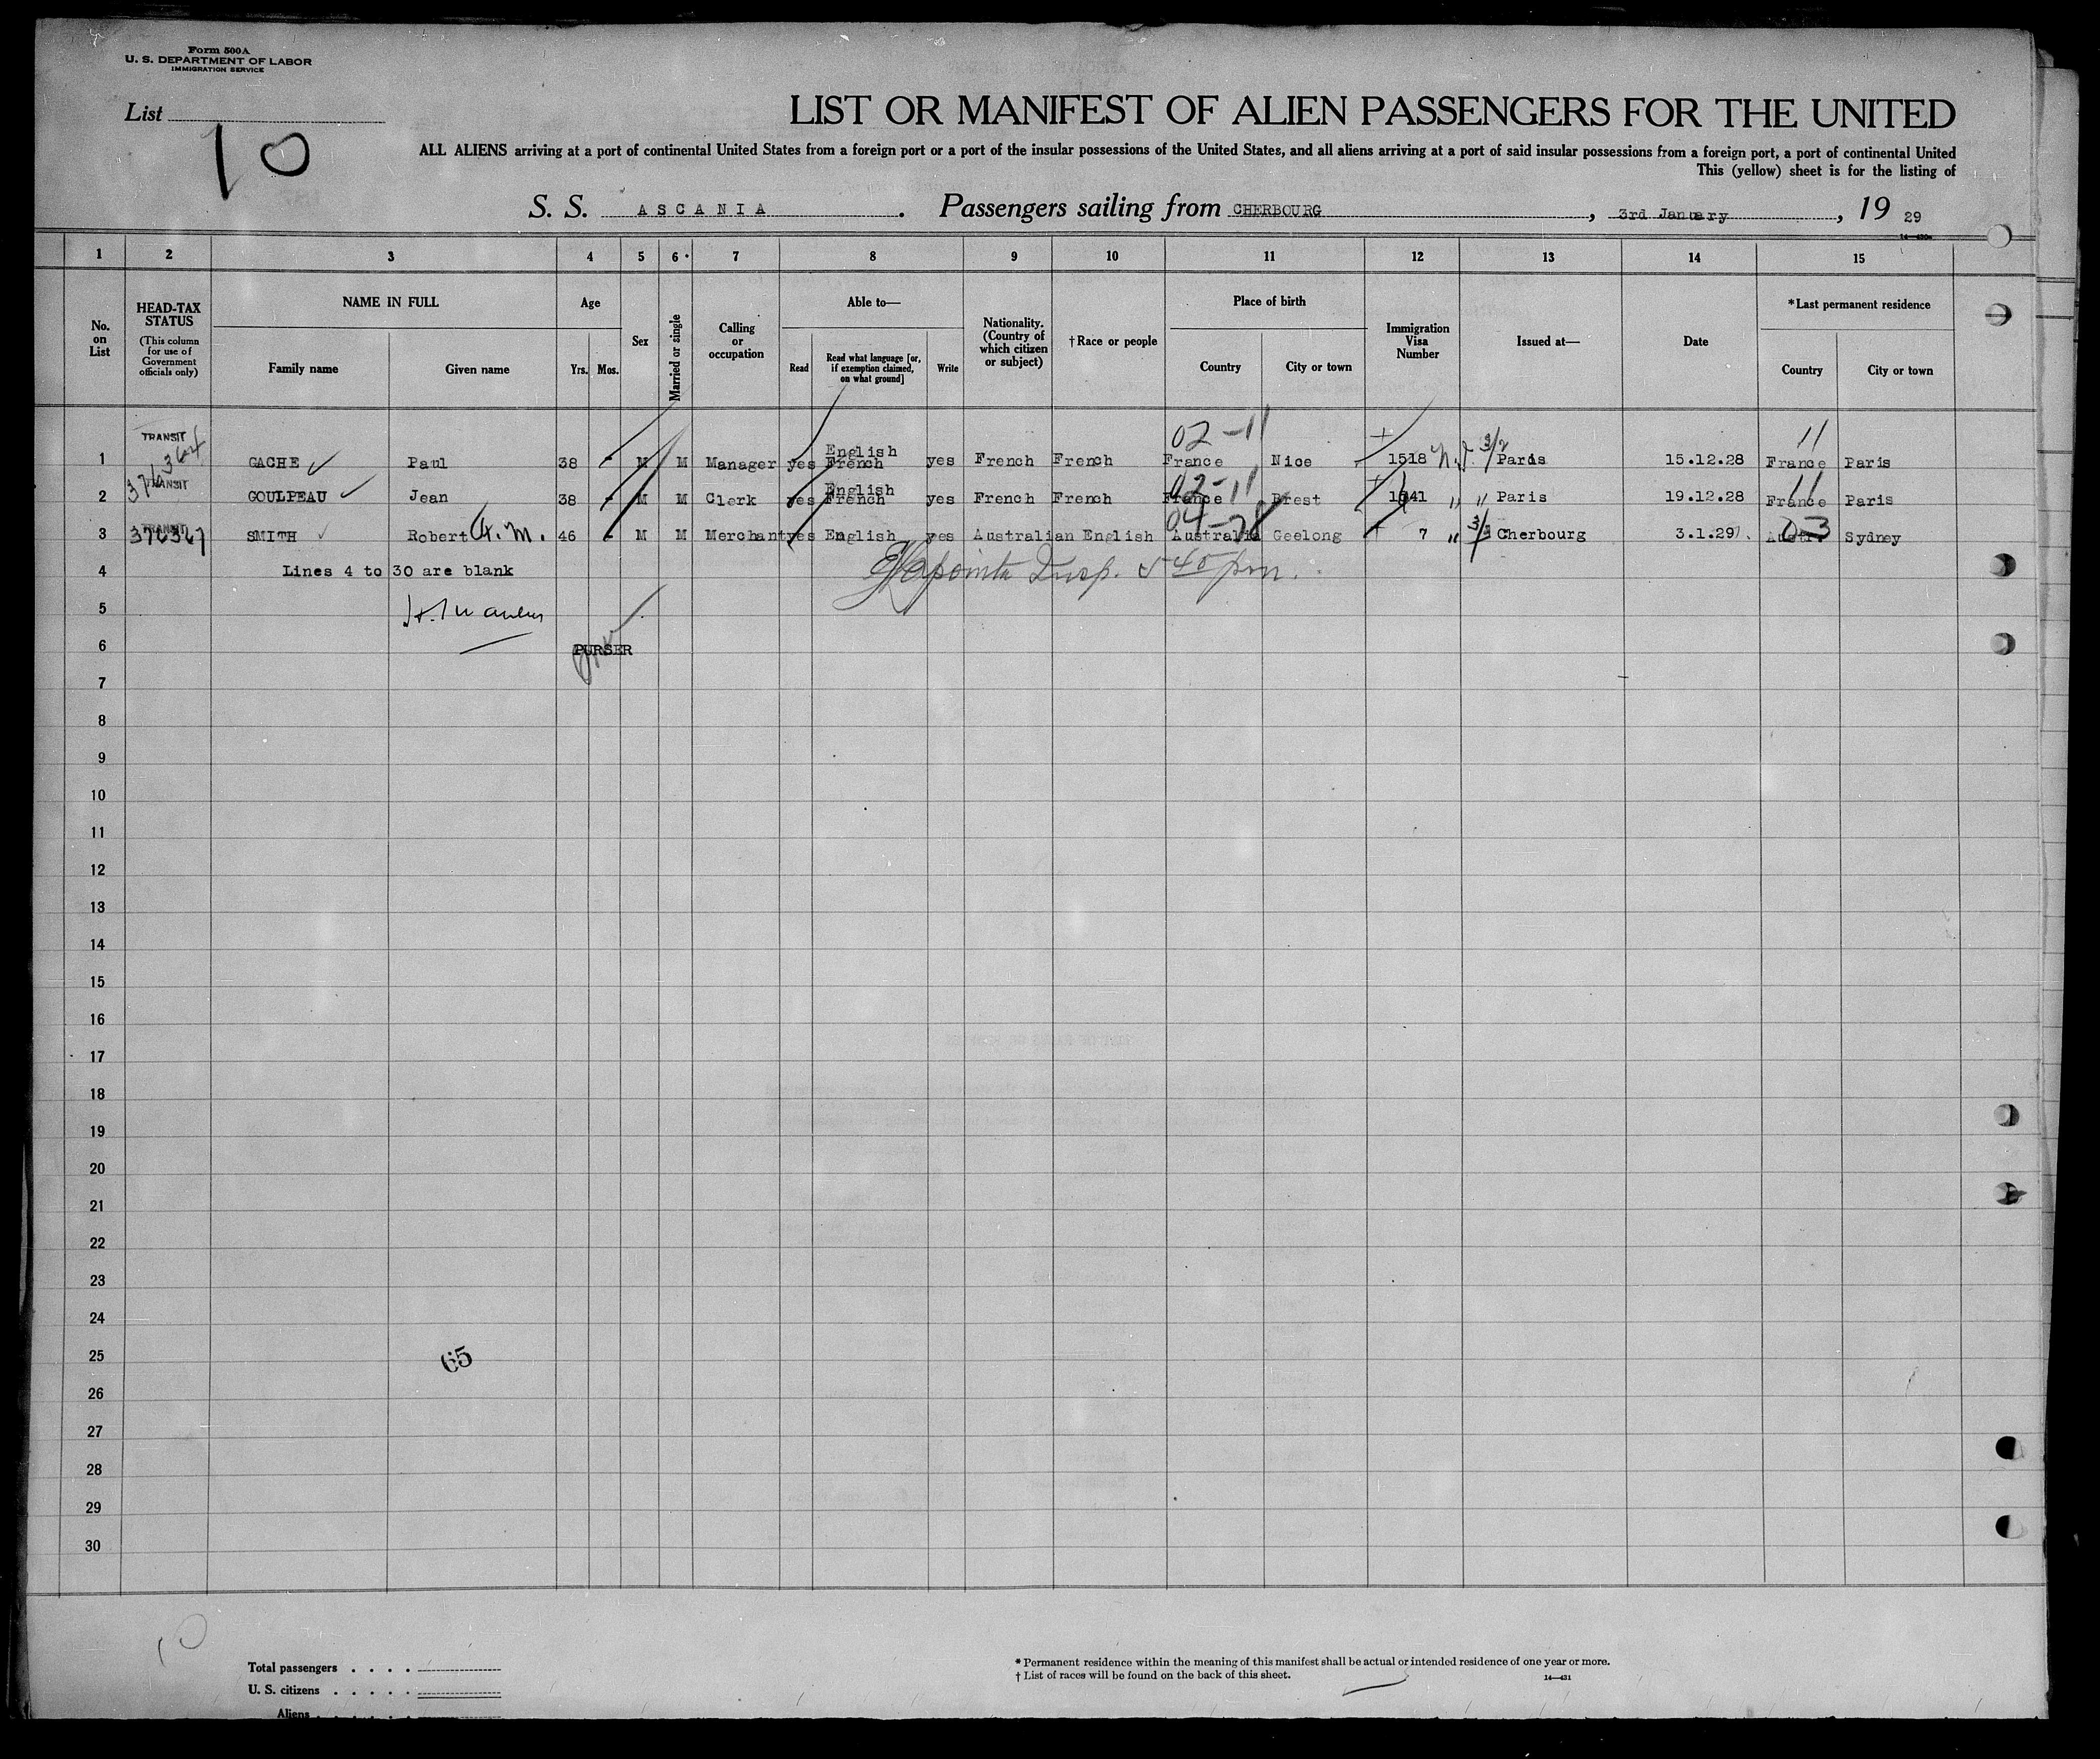 Form 500A
U. S. DEPARTMENT OF LABOR
IMMIGRATION SERVICE
List
10
LIST OR MANIFEST OF ALIEN PASSENGERS FOR THE UNITED
ALL ALIENS arriving at a port of continental United States from a foreign port or a port of the insular possessions of the United States, and all aliens arriving at a port of said insular possessions from a foreign port, a port of continental United
This (yellow) sheet is for the listing of
S. S. ASCANIA. Passengers sailing from CHERBOURG, 3rd January, 19 29
1 2 3 4 5 6 7 8 9 10 11 12 13 14 15
No. on List
HEAD-TAX STATUS
(This column for use of Government officials only)
NAME IN FULL
Family name Given name
Age
Yrs. Mos.
Sex
Married or single
Calling or occupation
Able to—
Read Read what language [or, if exemption claimed, on what ground] Write
Nationality. (Country of which citizen or subject)
†Race or people
Place of birth
Country City or town
Immigration Visa Number
Issued at—
Date
*Last permanent residence
Country City or town
02-11 11
TRANSIT
1 GACHE Paul 38 - M M Manager yes English French yes French French France Nice 1518 3/2 Paris 15.12.28 France Paris
TRANSIT 02-11 11
2 GOULPEAU Jean 38 - M M Clerk yes English French yes French French France Brest 1541 " " Paris 19.12.28 France Paris
TRANSIT
3 SMITH Robert 46 - M M Merchant yes English yes Australian English Australia Geelong 7 " 3/3 Cherbourg 3.1.29 Sydney
4 Lines 4 to 30 are blank Insp. 5 40 pm.
5
6 PURSER
7
8
9
10
11
12
13
14
15
16
17
18
19
20
21
22
23
24
25 65
26
27
28
29
30
10
Total passengers . . . .
U. S. citizens . . . . .
Aliens
* Permanent residence within the meaning of this manifest shall be actual or intended residence of one year or more.
† List of races will be found on the back of this sheet.
14—431